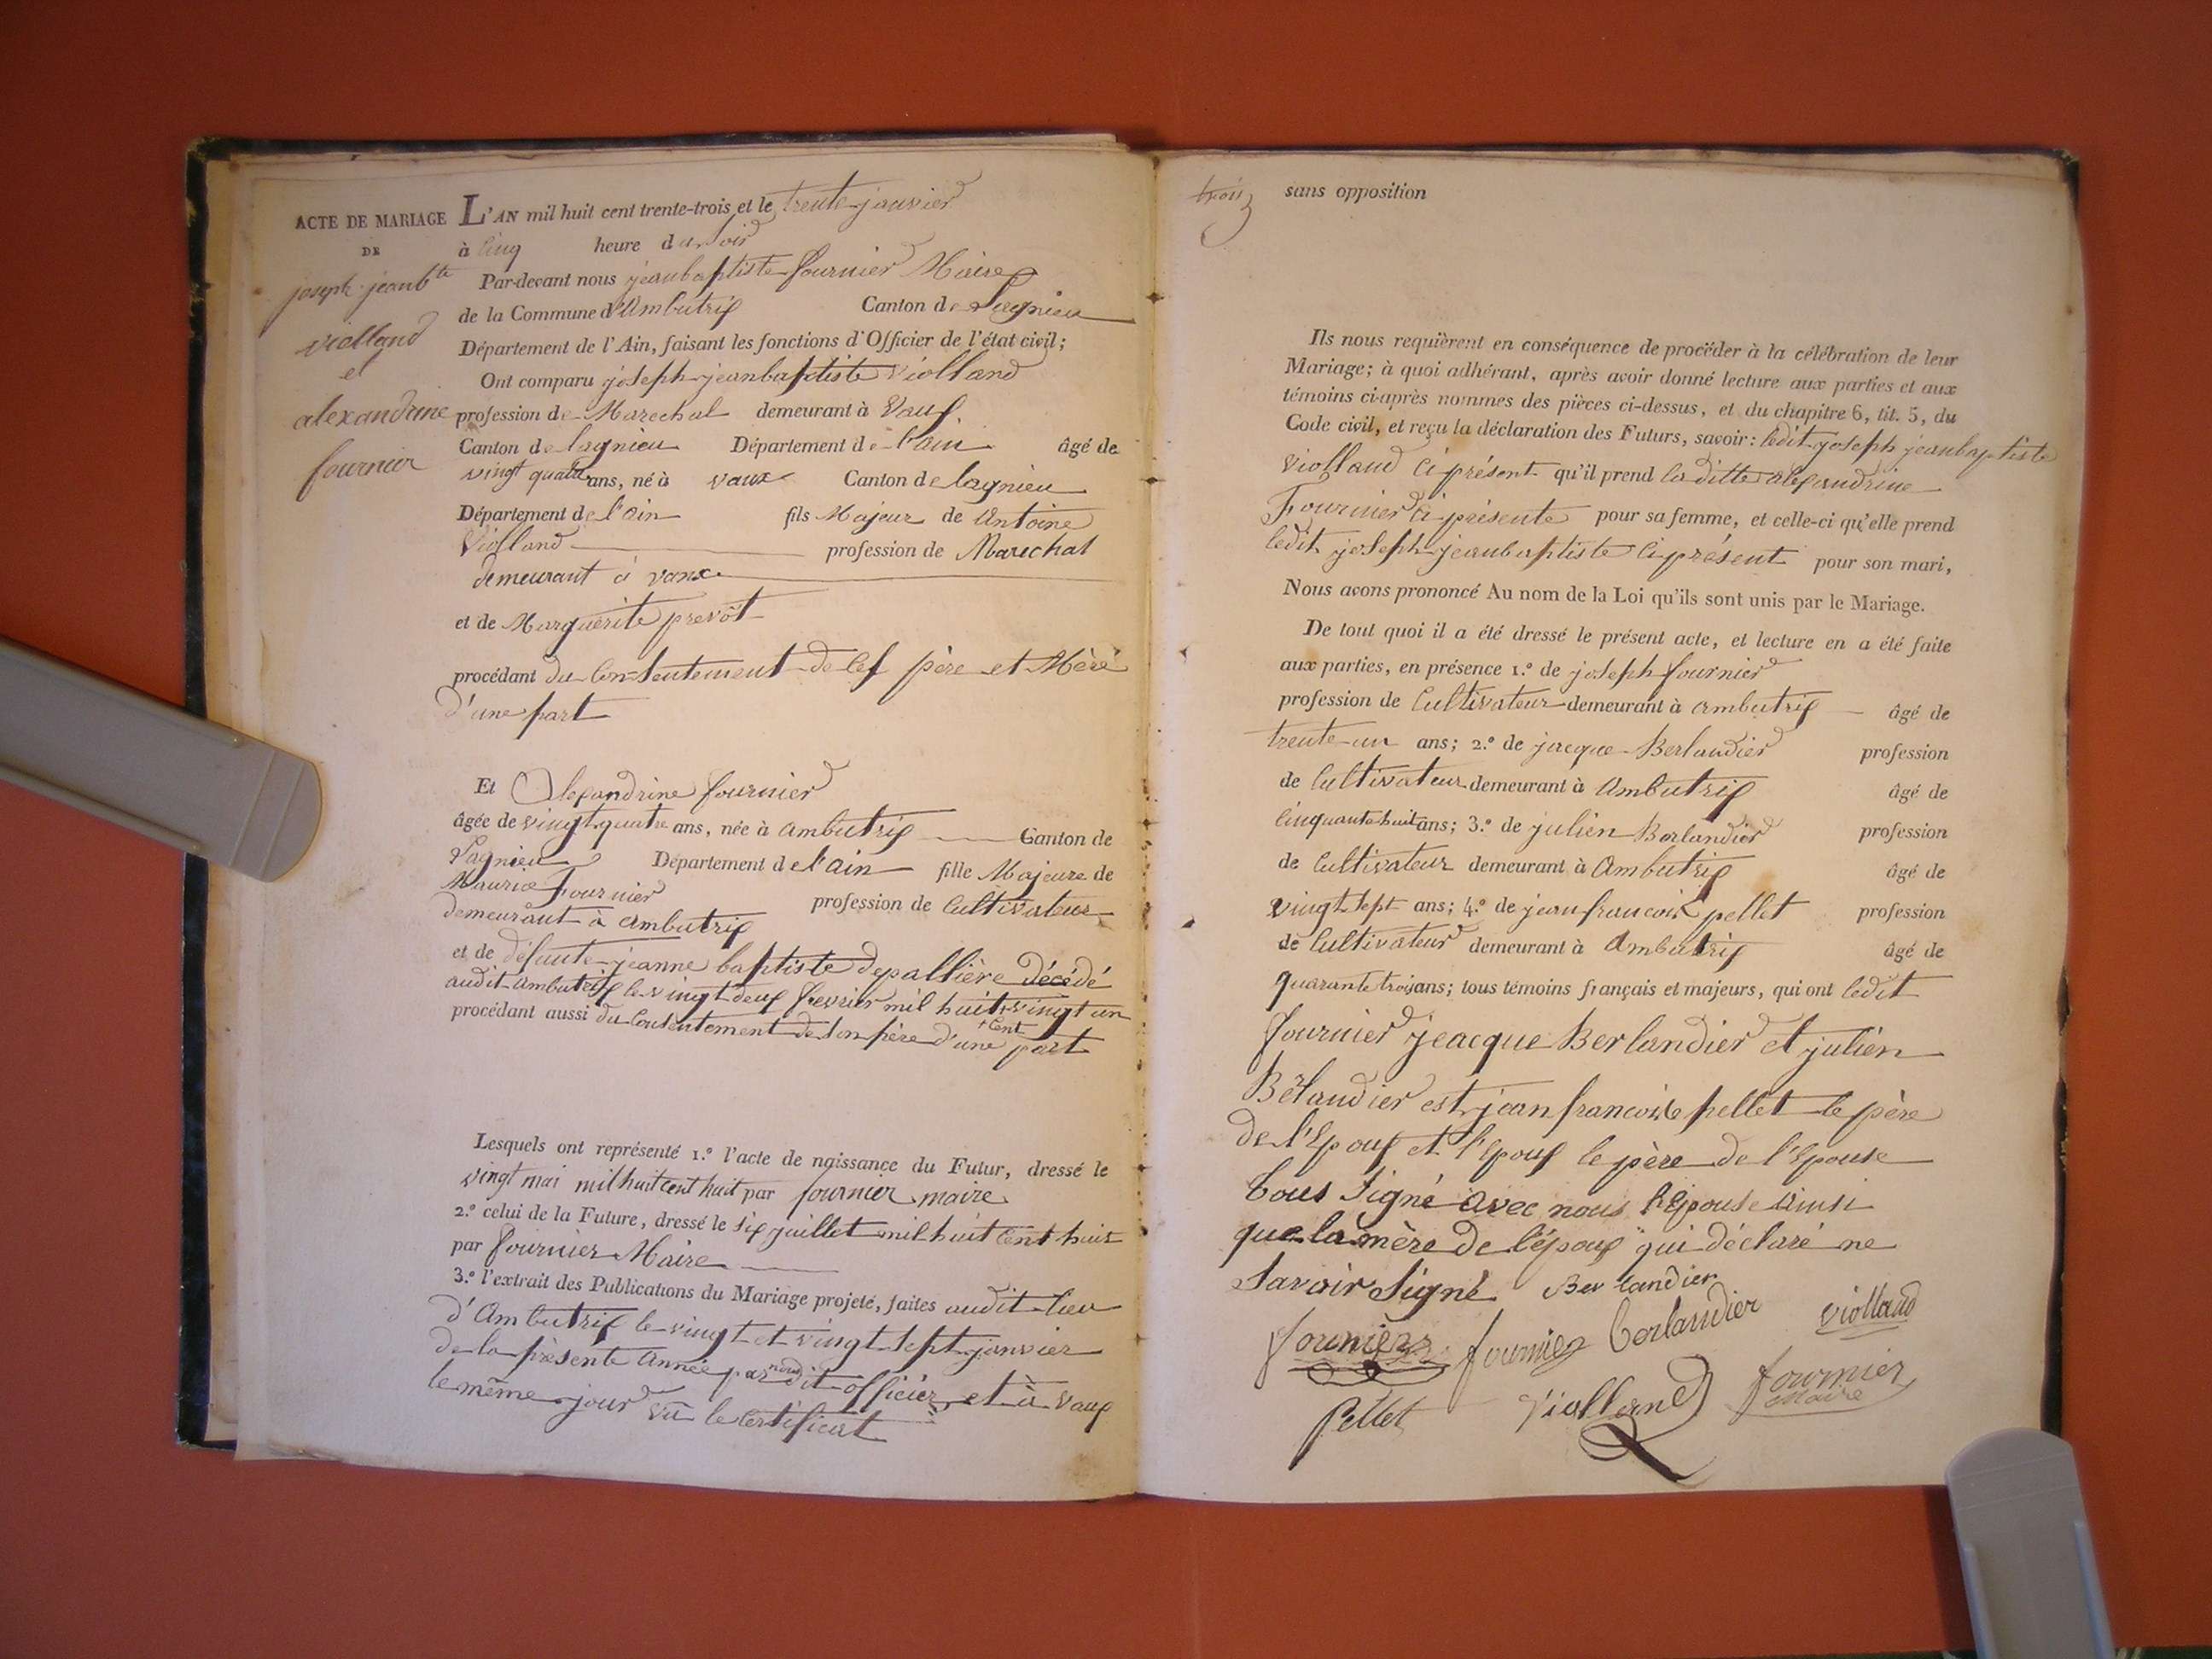 ACTE DE MARIAGE
DE
joseph jeanbte
violland
et
alexandrine
fournier
L'AN mil huit cent trente-trois et le trente janvier
à cinq heure du soir
Par-devant nous jeanbaptiste fournier Maire
de la Commune d'Ambutrix Canton de Lagnieu
Département de l'Ain, faisant les fonctions d'Officier de l'état civil;
Ont comparu joseph jeanbaptiste violland
profession de Marechal demeurant à Vaux
Canton de lagnieu Département de l'ain âgé de
vingt quatre ans, né à vaux Canton de lagnieu
Département de l'ain fils Majeur de Antoine
Violland profession de Marechal
demeurant à vaux
et de Marguerite prevôt
procédant du Consentement de ces père et Mère
d'une part
Et Alexandrine fournier
âgée de vingt quatre ans, née à ambutrix Canton de
Lagnieu Département de l'ain fille Majeure de
Maurice Fournier profession de Cultivateur
demeurant à ambutrix
et de défaute jeanne baptiste depallière décédé
audit ambutrix le vingt deux fevrier mil huit + vingt un
+ Cent
procédant aussi du Consentement de son père d'une part
Lesquels ont représenté 1.º l'acte de naissance du Futur, dressé le
vingt mai mil huit cent huit par fournier maire
2.º celui de la Future, dressé le six juillet mil huit Cent huit
par fournier Maire
3.º l'extrait des Publications du Mariage projeté, faites audit lieu
d'Ambutrix le vingt et vingt sept janvier
de la présente année par nous dit officier et à Vaux
le même jour vû le Certificat
trois
sans opposition
Ils nous requièrent en conséquence de procéder à la célébration de leur
Mariage; à quoi adhérant, après avoir donné lecture aux parties et aux
témoins ci-après nommes des pièces ci-dessus, et du chapitre 6, tit. 5, du
Code civil, et reçu la déclaration des Futurs, savoir: ledit joseph jeanbaptiste
violland Ci présent qu'il prend la ditte alexandrine
Fournier Ci présente pour sa femme, et celle-ci qu'elle prend
ledit joseph jeanbaptiste Ci présent pour son mari,
Nous avons prononcé Au nom de la Loi qu'ils sont unis par le Mariage.
De tout quoi il a été dressé le présent acte, et lecture en a été faite
aux parties, en présence 1.º de joseph fournier
profession de Cultivateur demeurant à ambutrix âgé de
trente un ans; 2.º de jacque Berlandier profession
de Cultivateur demeurant à Ambutrix âgé de
Cinquante huit ans; 3.º de julien Berlandier profession
de Cultivateur demeurant à Ambutrix âgé de
vingt sept ans; 4.º de jean francois pellet profession
de Cultivateur demeurant à Ambutrix âgé de
quarante trois ans; tous témoins français et majeurs, qui ont ledit
fournier jeacque Berlandier et julien
Berlandier est jean francois pellet le père
de l'Epoux et l'Epoux le père de l'Epouse
tous Signé avec nous l'Epouse ainsi
que la mère de l'époux qui déclaré ne
Savoir Signé Berlandier
fournier fournier berlandier violland
Pellet Violland fournier
Maire